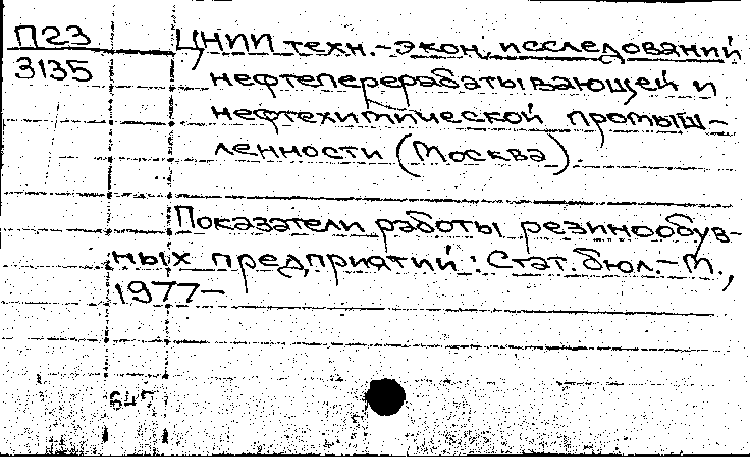 П23
3135
ЦНИИ техн.-экон. исследований
нефтеперерабатывающей и
нефтехимической промыш-
ленности (Москва).
Показатели работы резинообув-
ных предприятий: Стат. бюл.-М.,
1977-
647